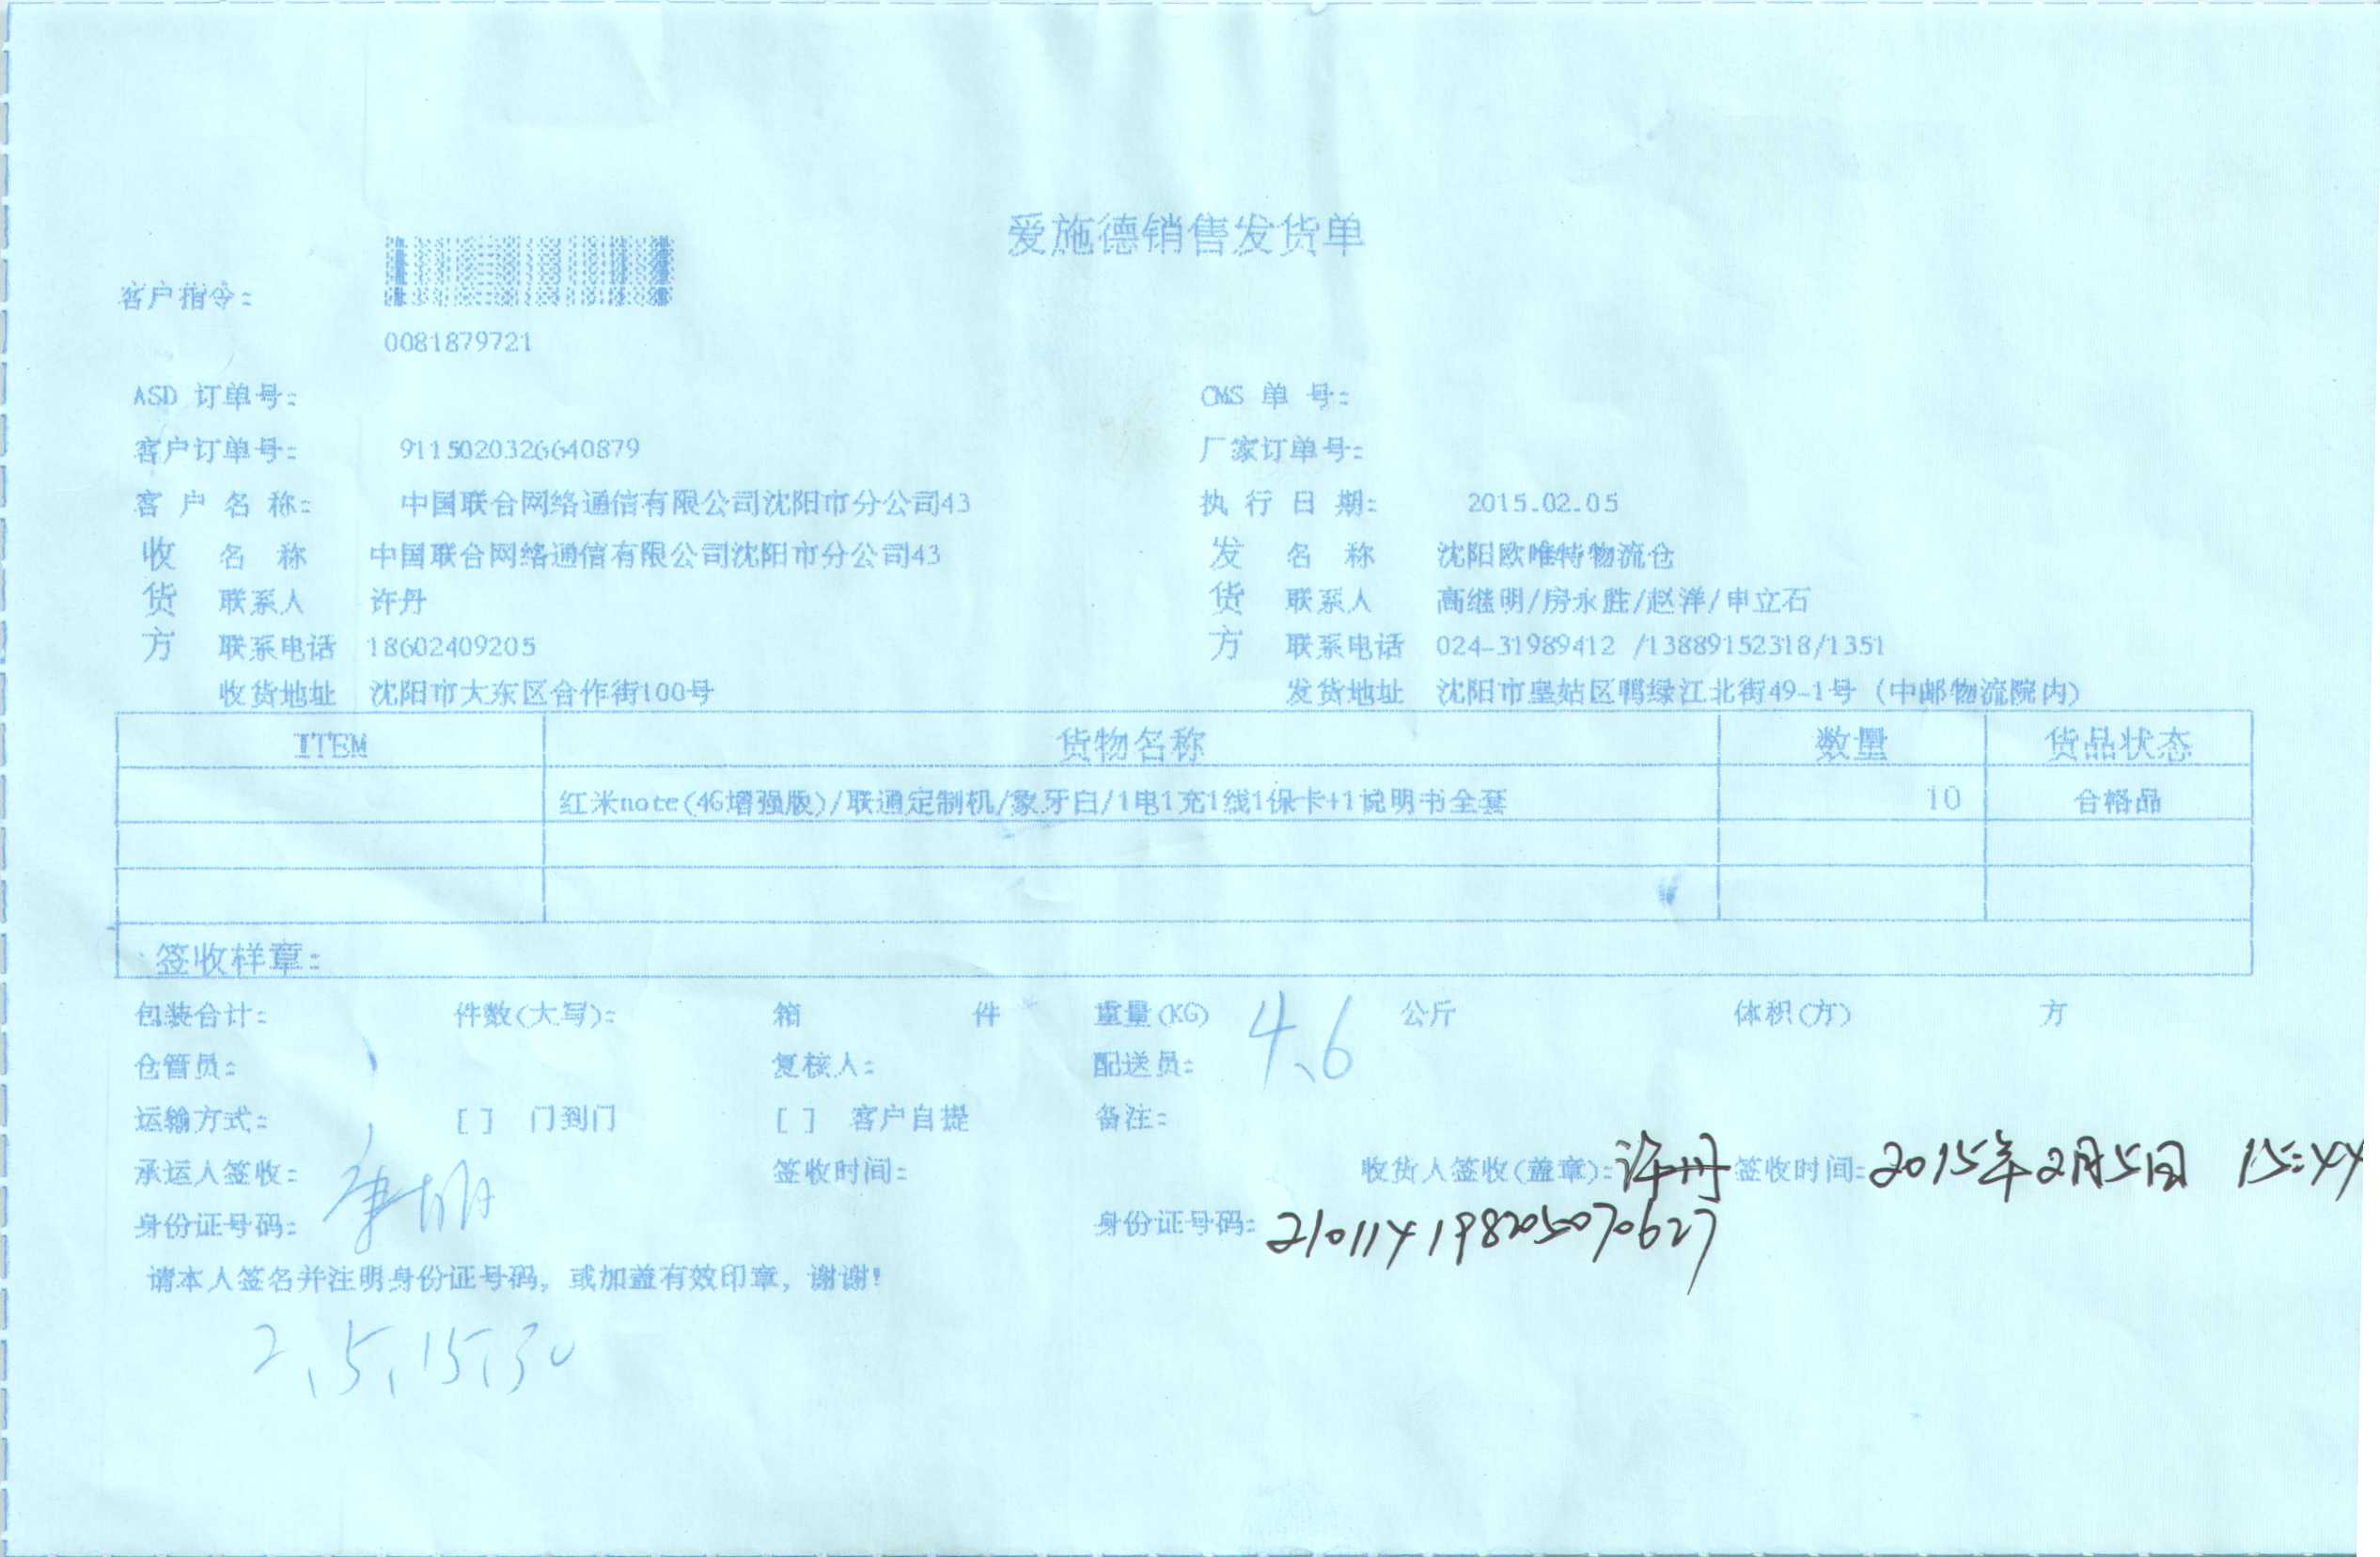 爱施德销售发货单
客户指令:
0081879721
ASD 订单号: CMS 单 号:
客户订单号: 9115020326640879 厂家订单号:
客 户 名 称: 中国联合网络通信有限公司沈阳市分公司43 执 行 日 期: 2015.02.05
收 名 称 中国联合网络通信有限公司沈阳市分公司43 发 名 称 沈阳欧唯特物流仓
货 联系人 许丹 货 联系人 高继明/房永胜/赵洋/申立石
方 联系电话 18602409205 方 联系电话 024-31989412 /13889152318/1351
收货地址 沈阳市大东区合作街100号 发货地址 沈阳市皇姑区鸭绿江北街49-1号 (中邮物流院内)
ITEM 货物名称 数量 货品状态
红米note(4G增强版)/联通定制机/象牙白/1电1充1线1保卡+1说明书全套 10 合格品
签收样章:
包装合计: 件数(大写): 箱 件 重量(KG) 4.6 公斤 体积(方) 方
仓管员: 复核人: 配送员:
运输方式: [ ] 门到门 [ ] 客户自提 备注:
承运人签收: 签收时间: 收货人签收(盖章): 许丹 签收时间: 2015年2月5日 15:44
身份证号码: 身份证号码: 210114198205070627
请本人签名并注明身份证号码, 或加盖有效印章, 谢谢!
2,5,15,30